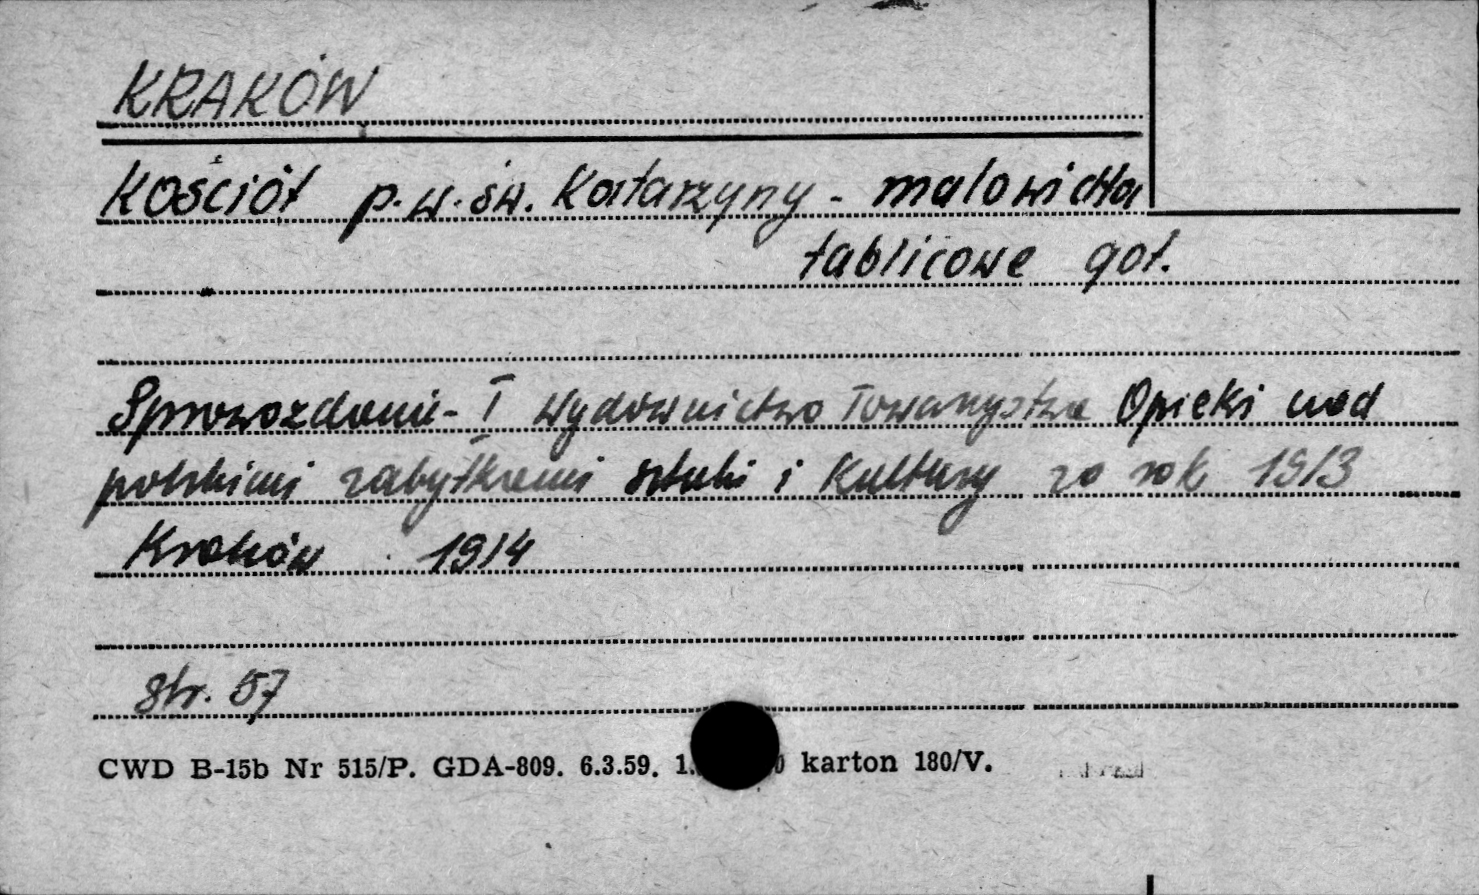 KRAKÓW
Kościół p.w. św. Katarzyny - malowidła
tablicowe got.
Sprawozdanie - I wydawnictwo Towarzystwa Opieki nad
polskimi zabytkami sztuki i Kultury za rok 1913
Kraków 1914
str. 57
CWD B-15b Nr 515/P. GDA-809. 6.3.59. karton 180/V.